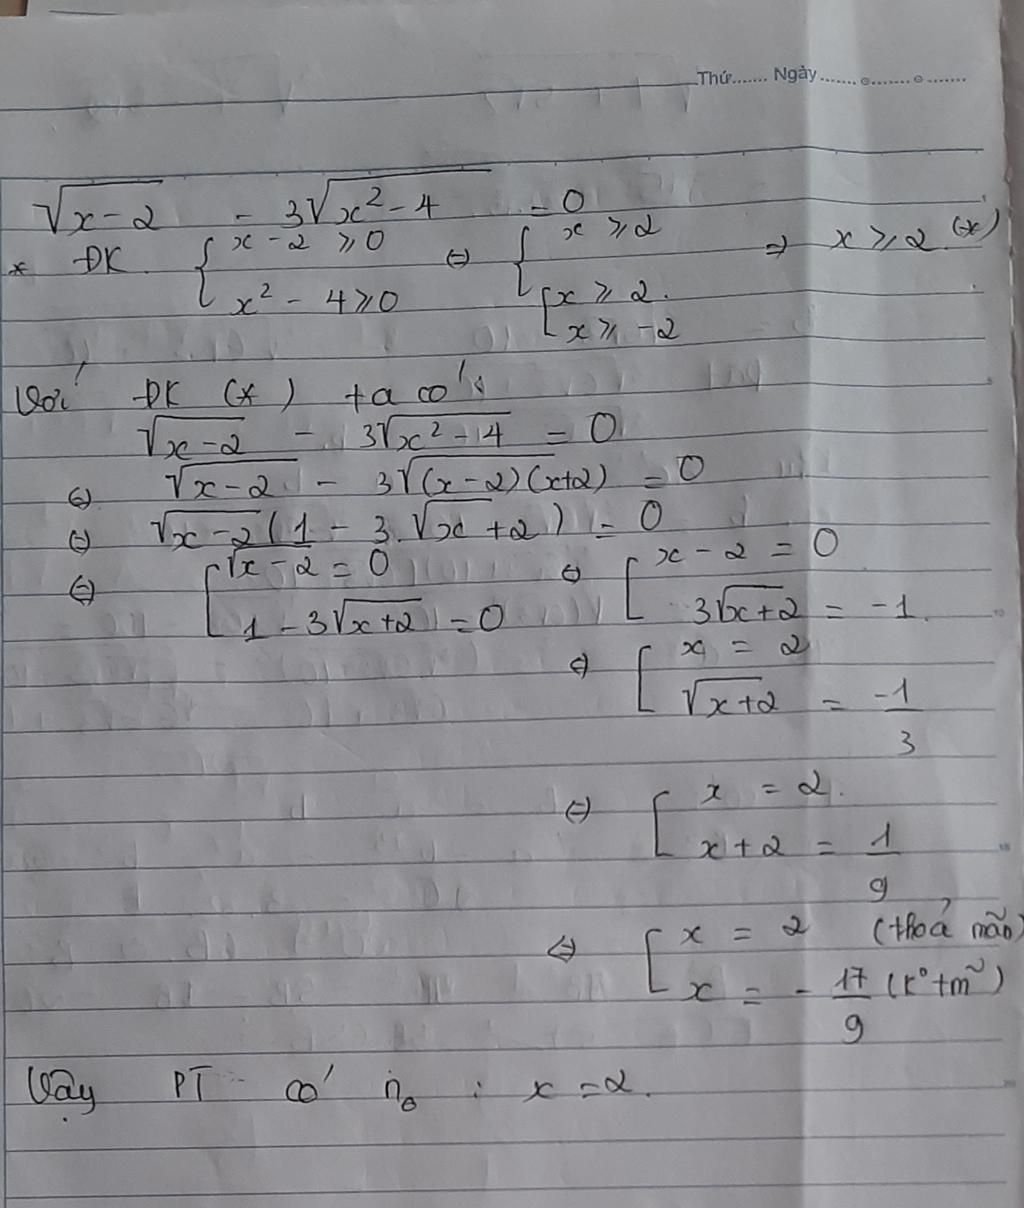 Thứ....... Ngày ....... o ....... o .......
√(x-2) - 3√(x² - 4) = 0
* ĐK { x - 2 ≥ 0 ⇔ { x ≥ 2 ⇒ x ≥ 2 (*)
x² - 4 ≥ 0 [ x ≥ 2.
x ≥ -2
Với ĐK (*) ta có:
√(x-2) - 3√(x² - 4) = 0
⇔ √(x-2) - 3√((x-2)(x+2)) = 0
⇔ √(x-2) (1 - 3.√x+2) = 0
⇔ [ √x-2 = 0 ⇔ [ x - 2 = 0
1 - 3√(x+2) = 0 3√(x+2) = -1.
⇔ [ x = 2
√(x+2) = -1/3
⇔ [ x = 2.
x + 2 = 1/9
⇔ [ x = 2 (thoả mãn)
x = - 17/9 (K° tm~)
Vậy PT có n₀ : x = 2.